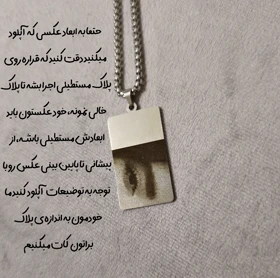 حتما به ابعاد عکسی که آپلود
میکنید دقت کنید که قراره روی
پلاک مستطیلی اجرا بشه تا پلاک
خالی نمونه، خود عکستون باید
ابعادش مستطیلی باشه، از
پیشانی تا پایین بینی عکس رو با
توجه به توضیحات آپلود کنید ما
خودمون به اندازه‌ی پلاک
براتون کات میکنیم